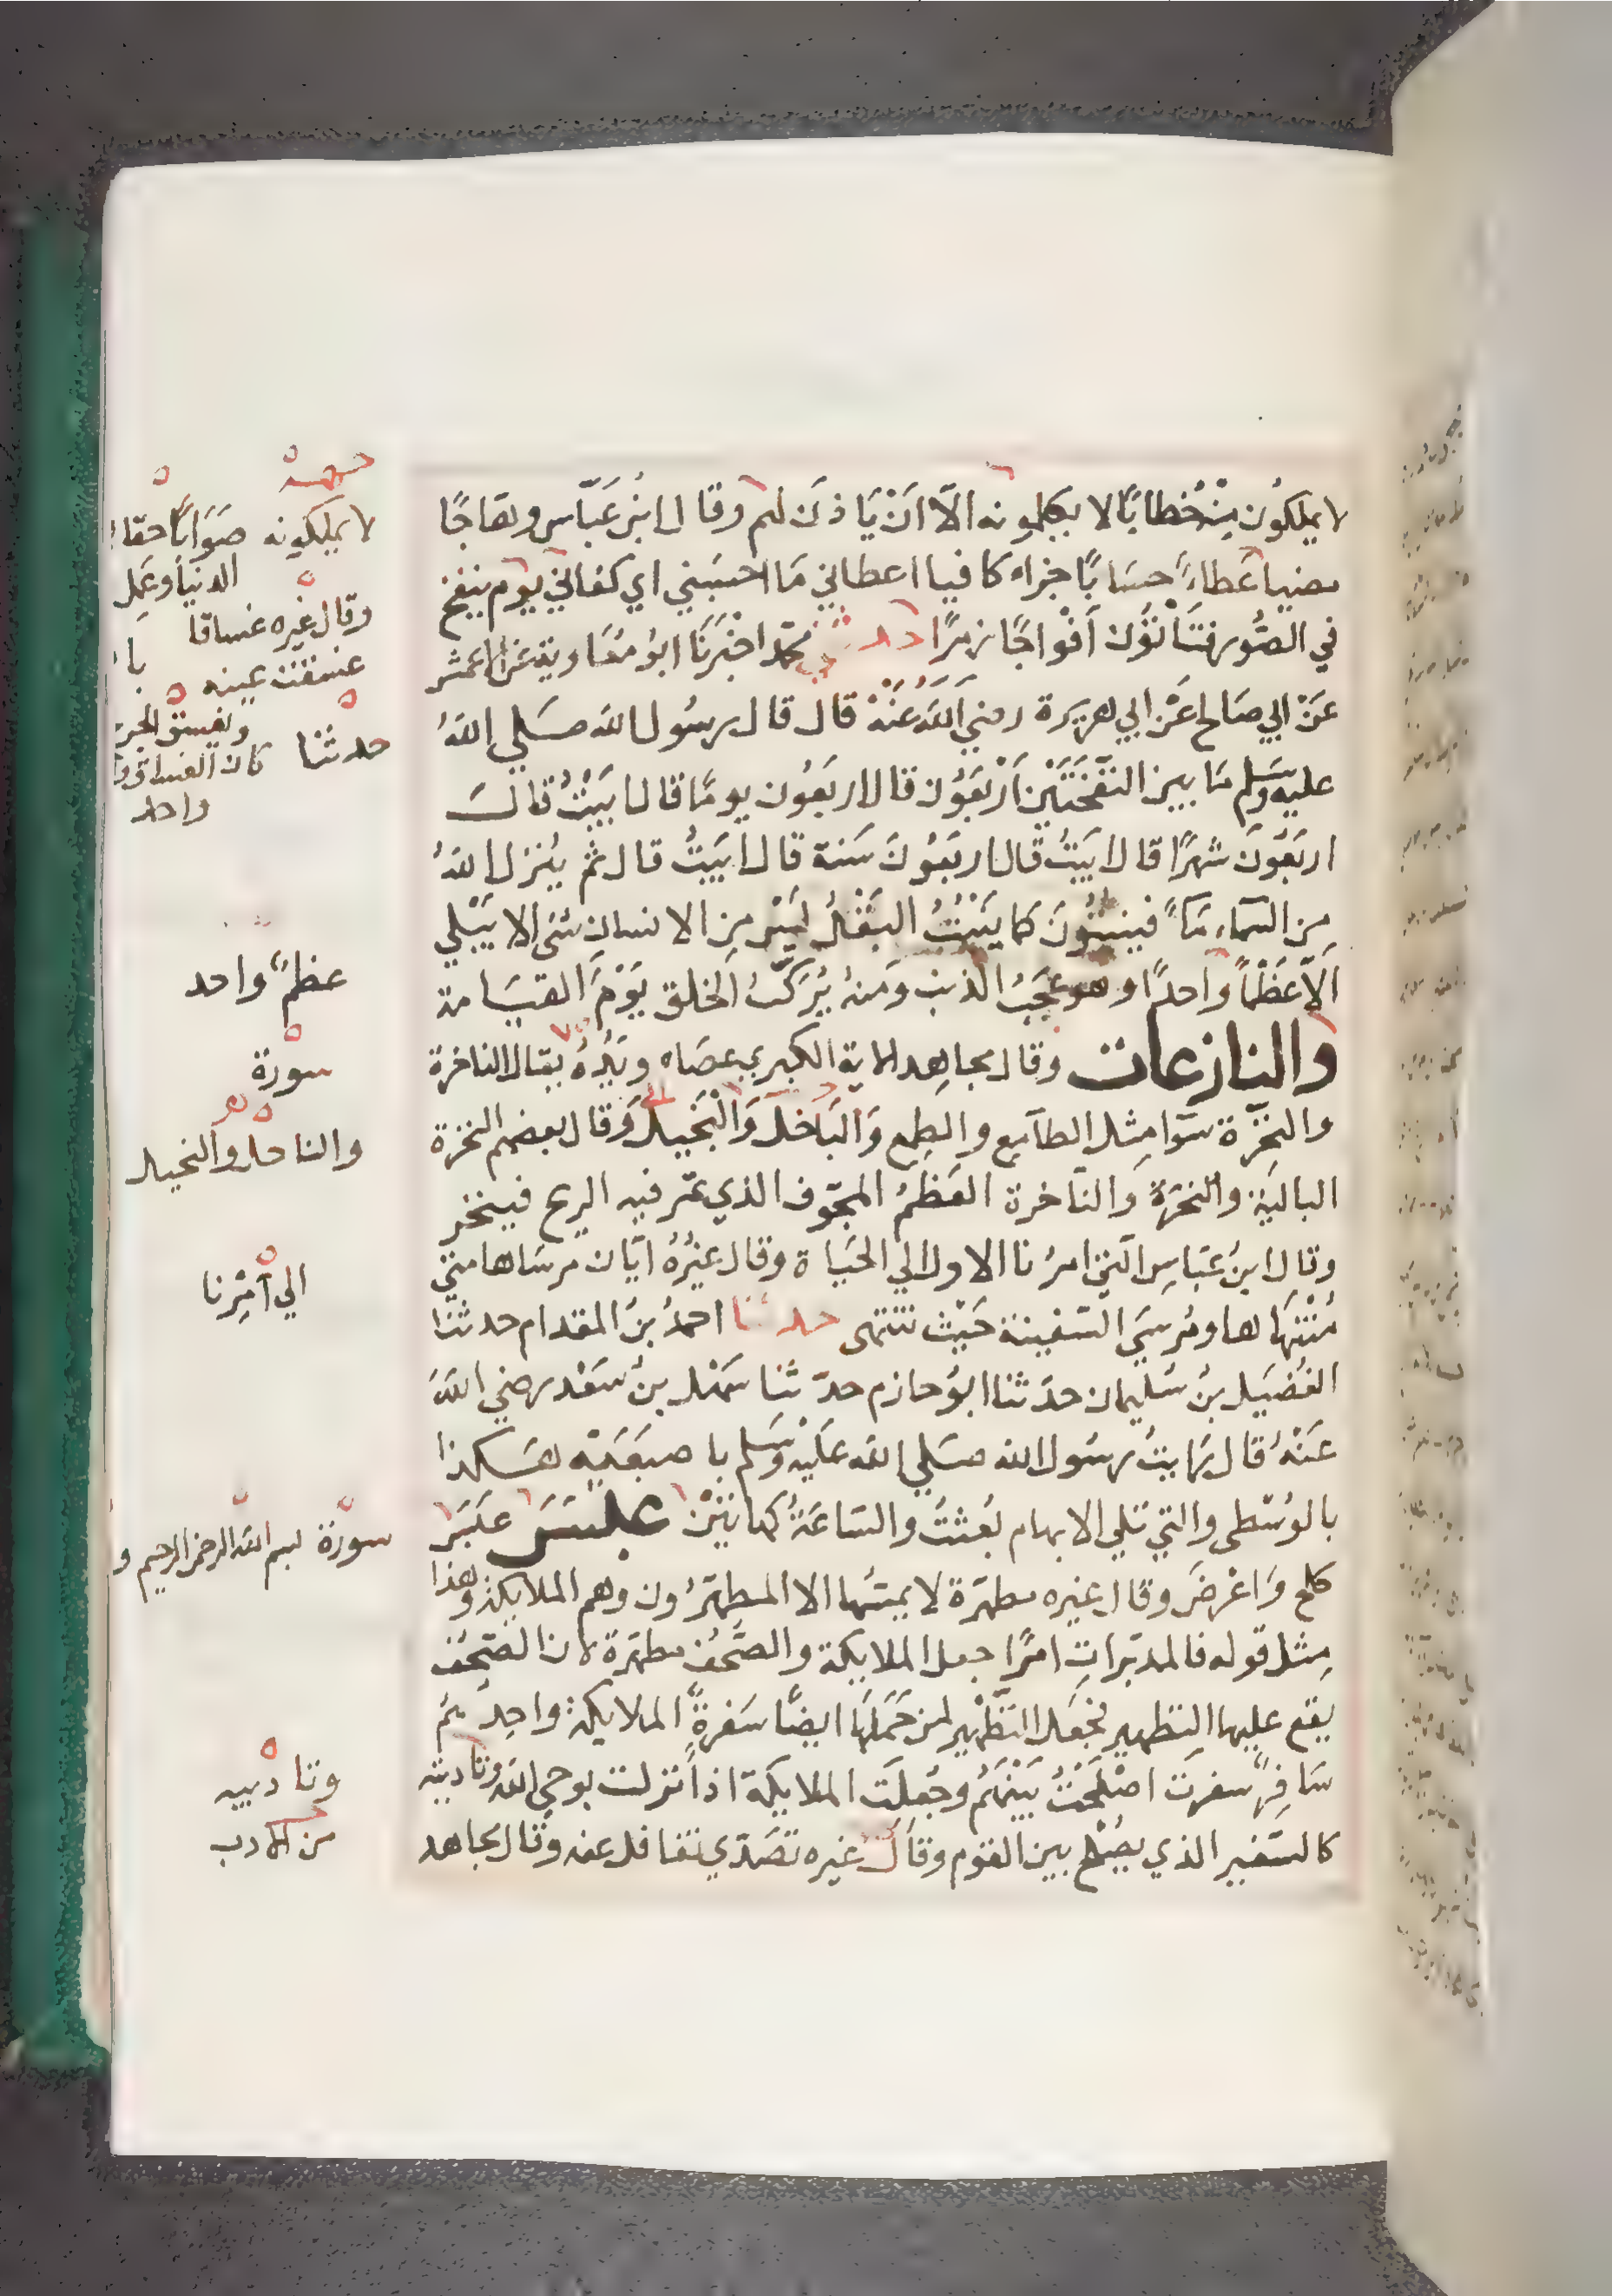 لا يملكُون مِنْهُ خطابًا لا يكلمونه الاّ اَنْ يَاذَن لهم وقال ابنُ عَبّاس وهاجًا
مضيا عَطاءً حسَابًا جزاء كافيا اعطاني مَا احسَبني اي كفاني يوم ينفخ
في الصُّور فتَأتُوْن اَفْواجًا زمرًا حدثني محمّد اخْبَرَنَا ابوُ معَاوية عَن الاعمش
عَنْ ابي صَالح عَنْ ابي هريرة رضيَ اللهُ عَنْهُ قال قال رسُول الله صَلي اللهُ
عليه وسَلم مَا بين النّفْخَتَيْن اَرْبَعُوْن قال اربَعُون يومًا قال ابَيْتُ قالَ
اربَعُونَ شهرًا قال ابَيتُ قال اربَعُونَ سَنة قال ابَيَتُ قال ثم يُنزل اللهُ
مِن السّماء مَاءً فينبتُونَ كما يَنْبُتُ البَقْلُ ليَسْ مِن الانسان شئ الا يَبْلي
اَلاّ عَظْمًا وَاحدًا وهو عَجَبُ الذنب ومَنهُ يُرَكّبُ الخلق يَوْمَ القيَامة
والنازعات وقال مجاهد الاية الكبري عصَاه ويَدُهُ يقال الناخرة
والنخِرَة سَوَا مِثل الطآمِع والطمِع وَالبَاخل وَالْبَخيل وَقال بعضهم النخرة
الباليَة والنخرَة وَالنَاخرة العَظمُ المجَوف الذي تمرّ فيه الريح فينخر
وقال ابنُ عَباسِ الَتي امرُنا الاول الي الحَيَاة وقال غيْرُهُ ايّان مرسَاها متي
مُنْتهَاها ومُرسَي السَفينة حَيْث تنتهى حدثنا احمدُ بنُ المقدام حدثنا
الفضَيل بنُ سُليمان حدَثنا ابوُ حازم حدّثنا سَهْل بنُ سَعْد رضي اللهَ
عَنْهُ قال رَايتُ رسُول الله صَلي الله عَليْه وَسَلم باصبَعَيْه هَكذا
بالوُسْطى والتي تلي الابهام بُعثتُ والسّاعَةُ كهاتَيْنْ عَبَسَ عَبَسَ
كلح وَاعْرضَ وقال غيره مطهرّة لا يمسّها الا المطهَّرُون وهم الملايكة وهذا
مِثل قوله فالمدبّراتِ امرًا جعل الملايكة والصُّحُف مطهرّة لان الصّحُف
يقع عليها التطهير فجُعَل التّطْهير لمن حَمَلهَا ايضًا سَفرةٍ الملايكة واحِدهَمُ
سَافِرٌ سفرت اصْلَحْتُ بَيْنَهُم وجُعلَت الملايكة اذا نزلت بوحي الله وتاديته
كالسَفير الذي يُصْلح بين القوم وقاَل غيره تصَدّي تغافل عنه وقال مجاهد
لا يملكونه صَوَابًا حقًا
الدنيا وعَمِل
وقال غيره غساقا
غسقت عينه
ويغسق الجرح
كان الغساق و
واحد
حدثنا
عظمٌ واحد
سورة
والناحل والنحيل
الي اَمْرِنا
سورة بسم الله الرحمن الرحيم و
وتاديبه
من الادب